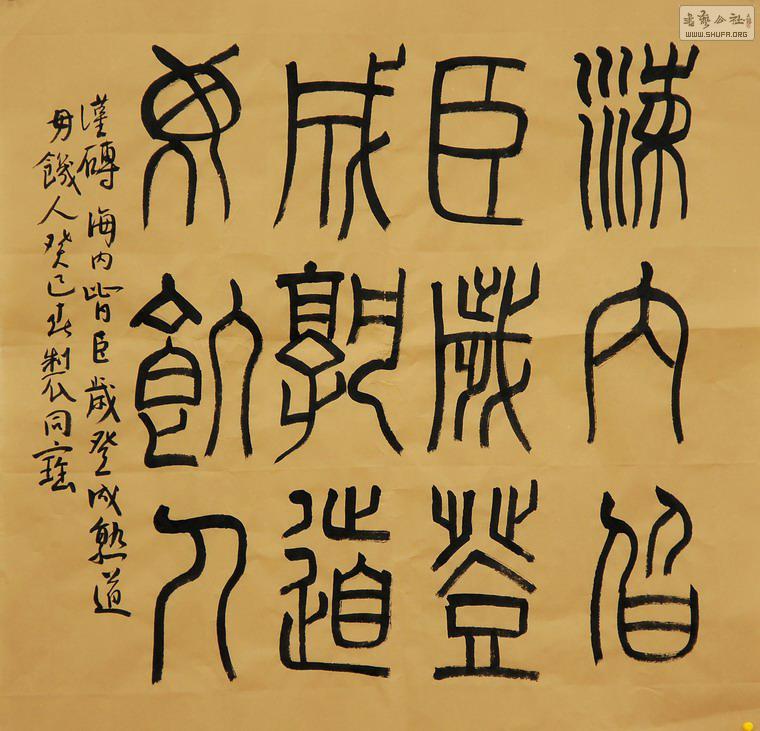 海内皆
臣歲登
成孰道
毋飢人
漢磚海内皆臣歲登成熟道
毋饑人癸巳春製同
書藝公社
WWW.SHUFA.ORG